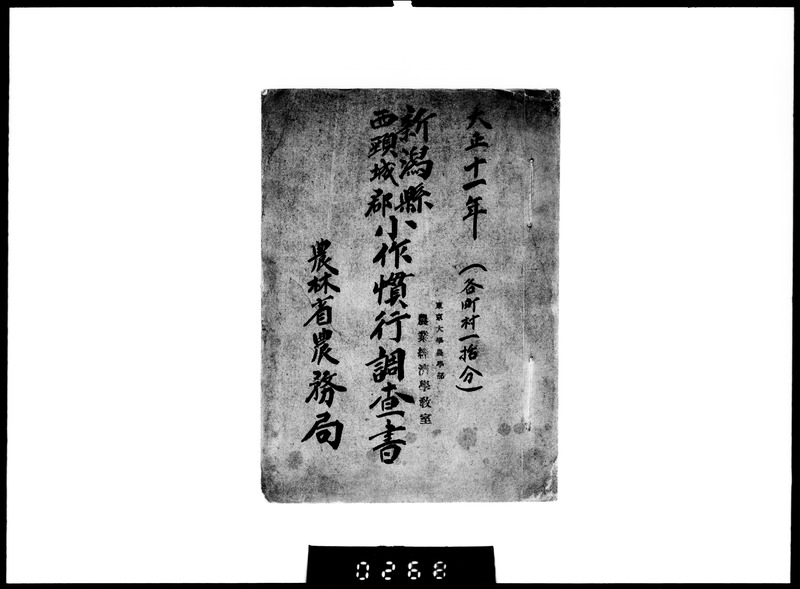 大正十一年 (各町村一括分)
新潟縣
西頸城郡
小作慣行調査書
東京大學農學部
農業經濟學教室
農林省農務局
0268